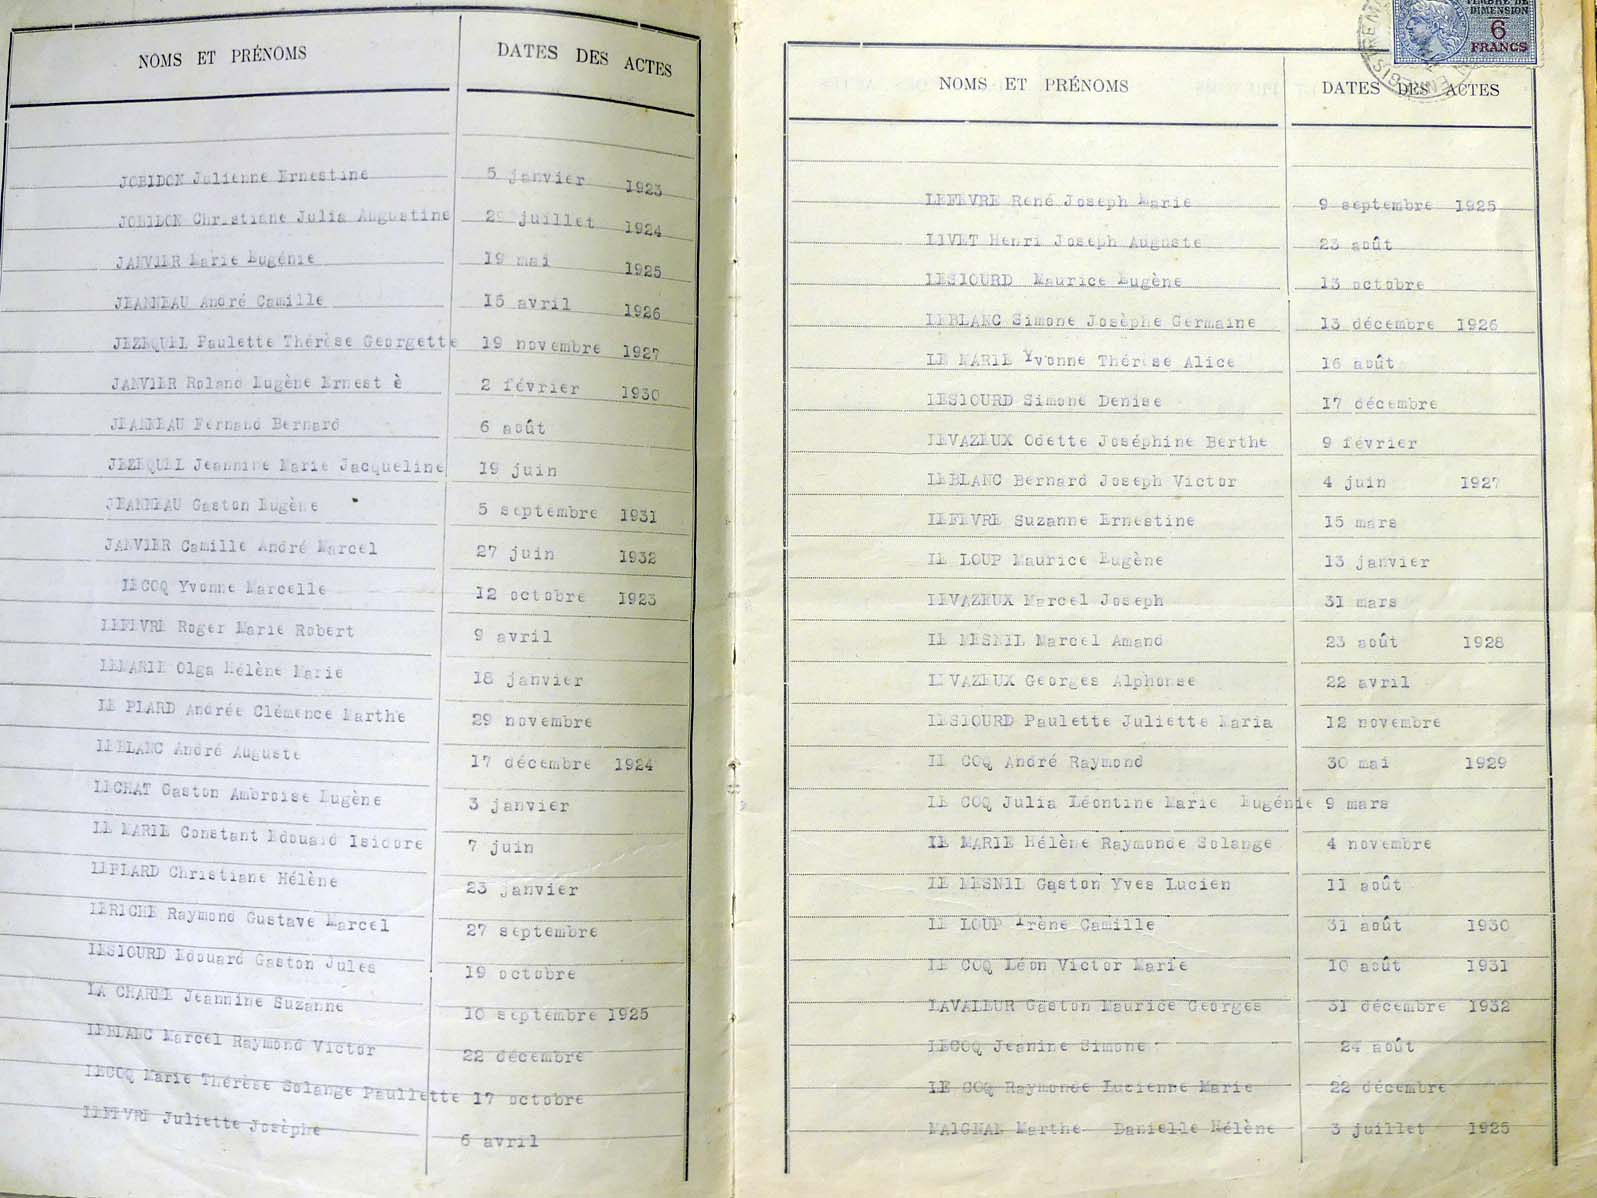 NOMS ET PRÉNOMS DATES DES ACTES
JOBIDON Julienne Ernestine 5 janvier 1923
JOBIDON Christiane Julia Augustine 29 juillet 1924
JANVIER Marie Eugénie 19 mai 1925
JEANNEAU André Camille 15 avril 1926
JEZEQUEL Paulette Thérèse Georgette 19 novembre 1927
JANVIER Roland Eugène Ernest è 2 février 1930
JEANNEAU Fernand Bernard 6 août
JEZEQUEL Jeannine Marie Jacqueline 19 juin
JEANNEAU Gaston Eugène 5 septembre 1931
JANVIER Camille André Marcel 27 juin 1932
LECOQ Yvonne Marcelle 12 octobre 1923
LEFEVRE Roger Marie Robert 9 avril
LEMARIE Olga Hélène Marie 18 janvier
LE PLARD Andrée Clèmence Marthe 29 novembre
LEBLANC André Auguste 17 décembre 1924
LECHAT Gaston Ambroise Eugène 3 janvier
LE MARIE Constant Edouard Isidore 7 juin
LEPLARD Christiane Hélène 23 janvier
LERICHE Raymond Gustave Marcel 27 septembre
LESIOURD Edouard Gaston Jules 19 octobre
LA CHAREL Jeannine Suzanne 10 septembre 1925
LEBLANC Marcel Raymond Victor 22 décembre
LECOQ Marie Thérèse Solange Paullette 17 octobre
LEFEVRE Juliette Josèphe 6 avril
TIMBRE DE
DIMENSION
6
FRANCS
NOMS ET PRÉNOMS DATES DES ACTES
LEFEVRE René Joseph Marie 9 septembre 1925
LIVET Henri Joseph Auguste 23 août
LESIOURD Maurice Eugène 13 octobre
LEBLANC Simone Josèphe Germaine 13 décembre 1926
LE MARIE Yvonne Thérèse Alice 16 août
LESIOURD Simone Denise 17 décembre
LEVAZEUX Odette Joséphine Berthe 9 février
LEBLANC Bernard Joseph Victor 4 juin 1927
LEFEVRE Suzanne Ernestine 15 mars
LE LOUP Maurice Eugène 13 janvier
LEVAZEUX Marcel Joseph 31 mars
LE MESNIL Marcel Amand 23 août 1928
LEVAZEUX Georges Alphonse 22 avril
LESIOURD Paulette Juliette Maria 12 novembre
LE COQ André Raymond 30 mai 1929
LE COQ Julia Léontine Marie Eugénie 9 mars
LE MARIE Hélène Raymonde Solange 4 novembre
LE MESNIL Gaston Yves Lucien 11 août
LE LOUP Irène Camille 31 août 1930
LE COQ Léon Victor Marie 10 août 1931
LAVALLEUR Gaston Maurice Georges 31 décembre 1932
LECOQ Jeanine Simone 24 août
LE COQ Raymonde Lucienne Marie 22 décembre
MAIGNAN Marthe Danielle Hélène 3 juillet 1925